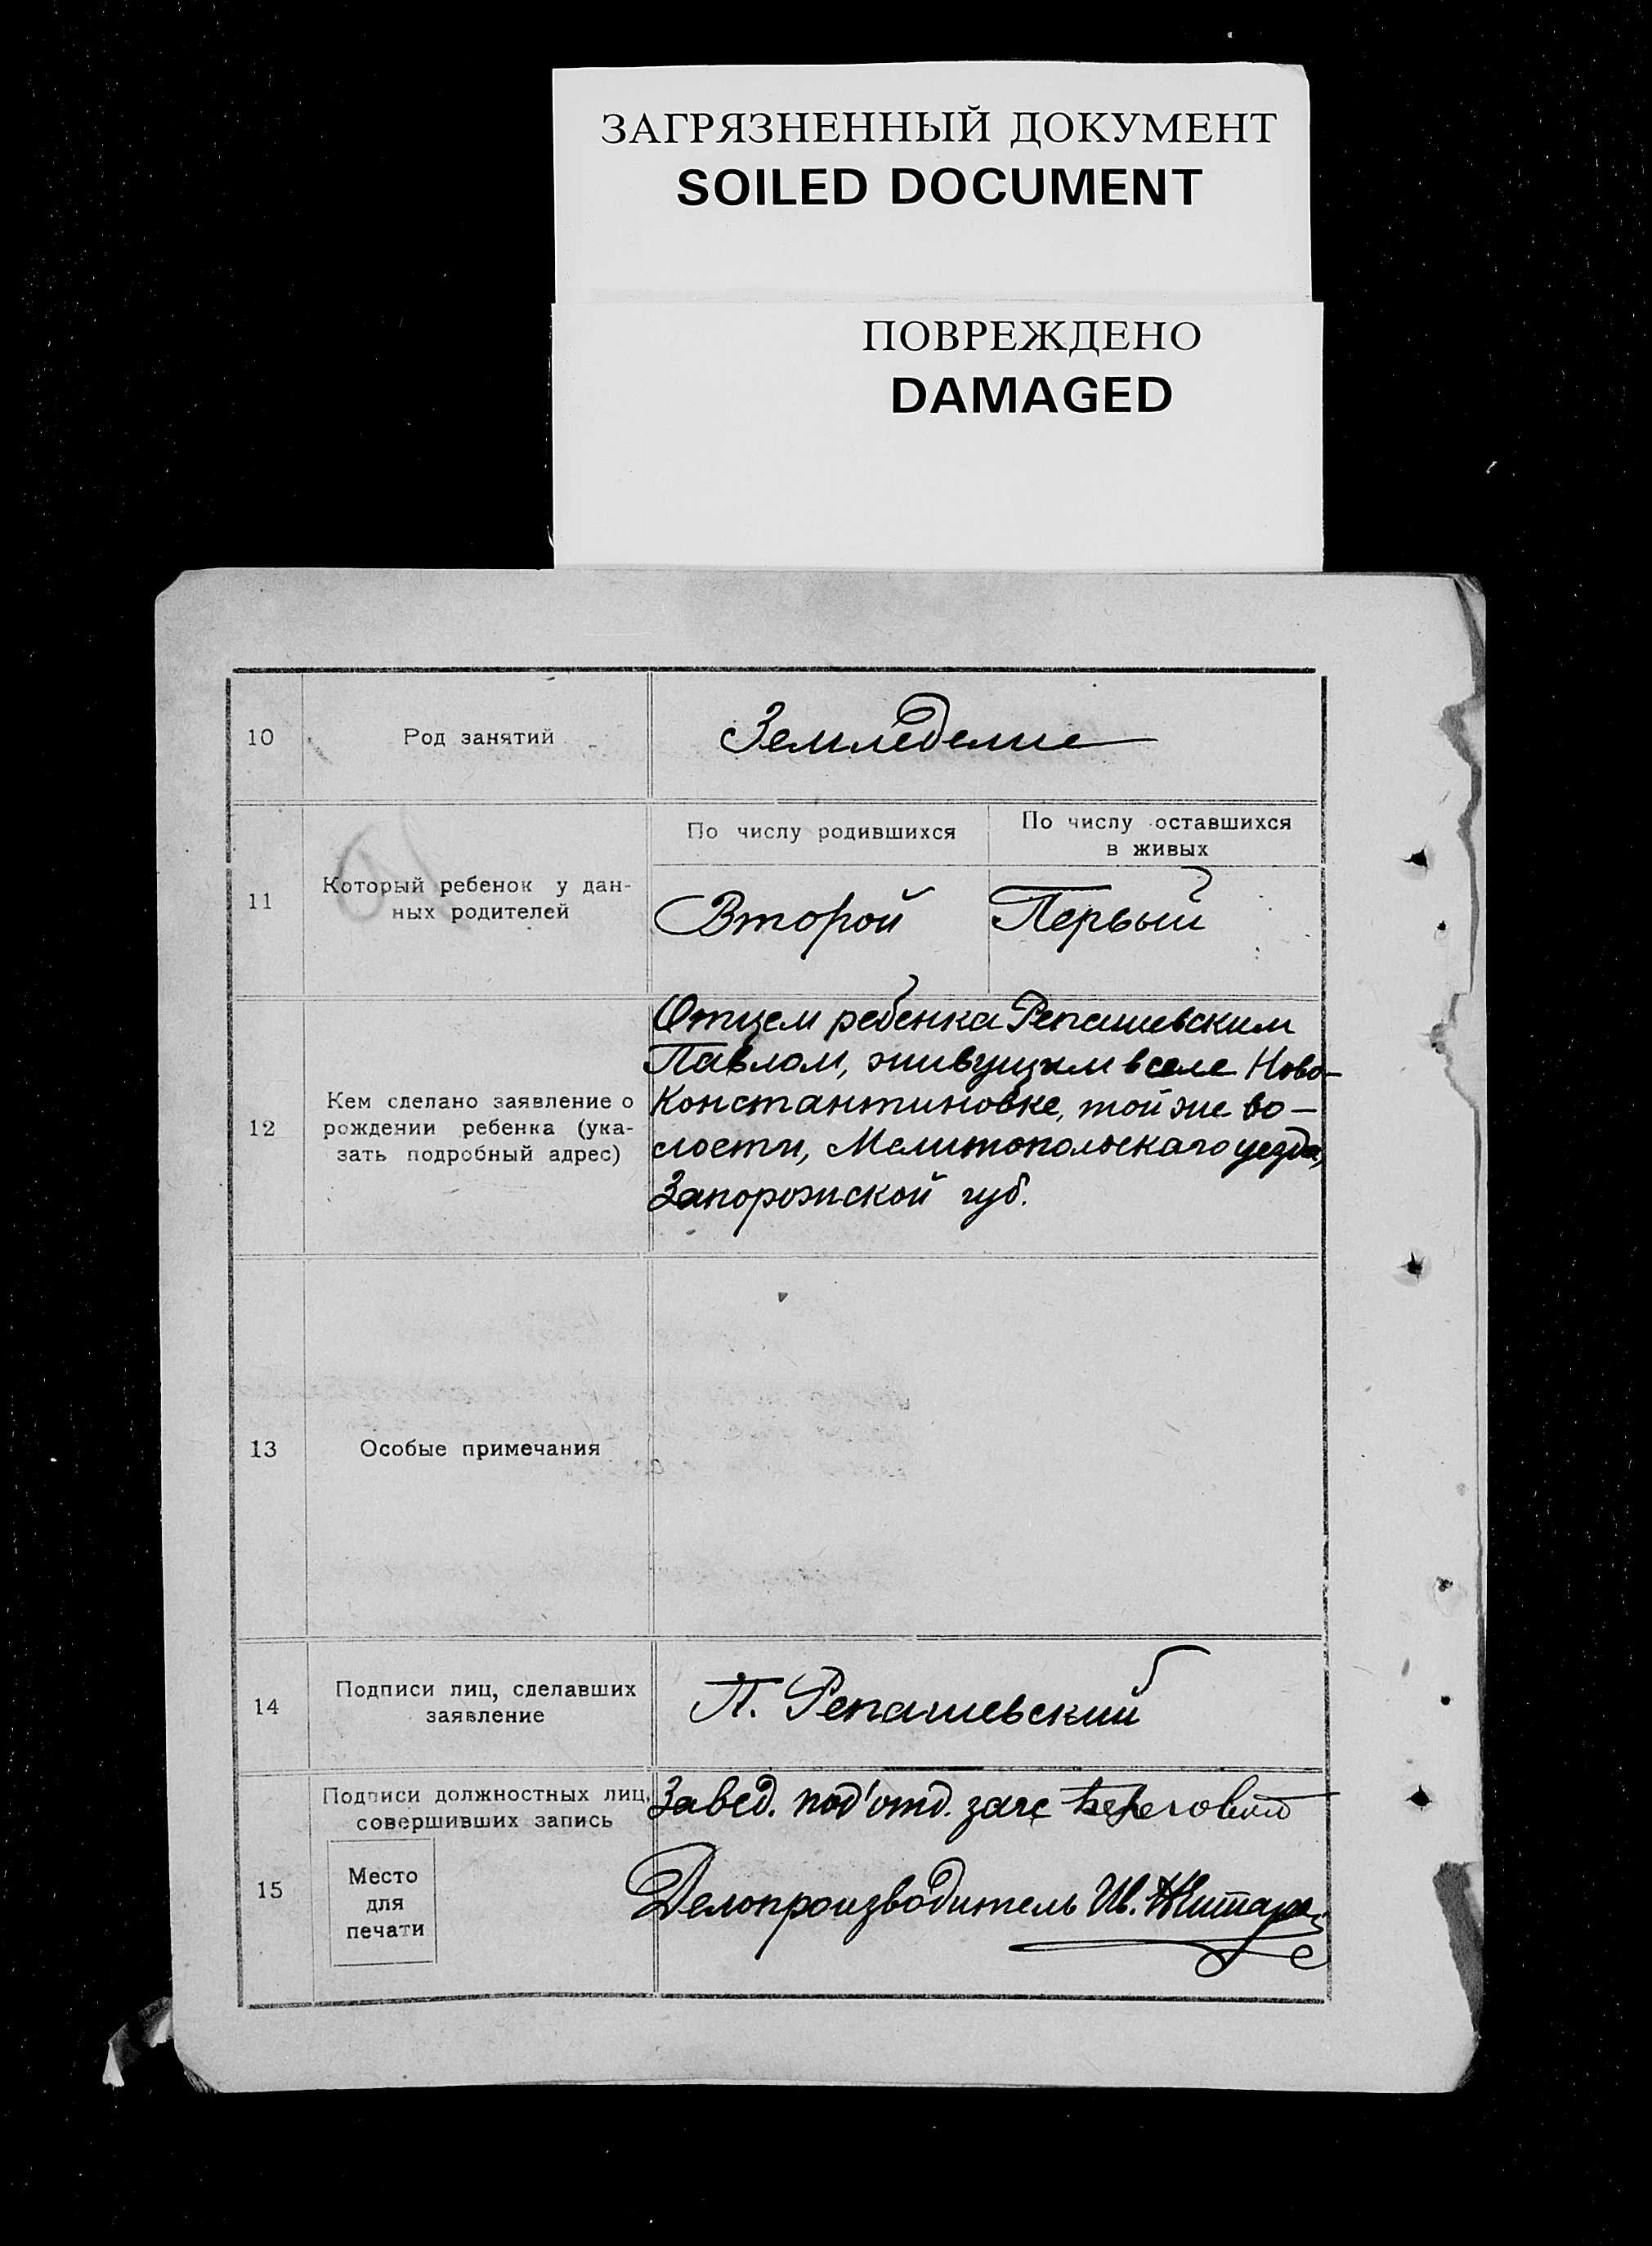 ЗАГРЯЗНЕННЫЙ ДОКУМЕНТ
SOILED DOCUMENT
ПОВРЕЖДЕНО
DAMAGED
10 Род занятий Земледелие
По числу родившихся По числу оставшихся
в живых
11 Который ребенок у дан-
ных родителей
Второй Первый
12 Кем сделано заявление о
рождении ребенка (ука-
зать подробный адрес)
Отцем ребенка Репашевским
Павлом, живущим в селе Ново-
Константиновке, той же во-
лости, Мелитопольскаго уезда,
Запорожской губ.
13 Особые примечания
14 Подписи лиц, сделавших
заявление
П. Репашевский
15 Подписи должностных лиц,
совершивших запись
Место
для
печати
Завед. под'отд. загс Береговой
Делопроизводитель Ив.